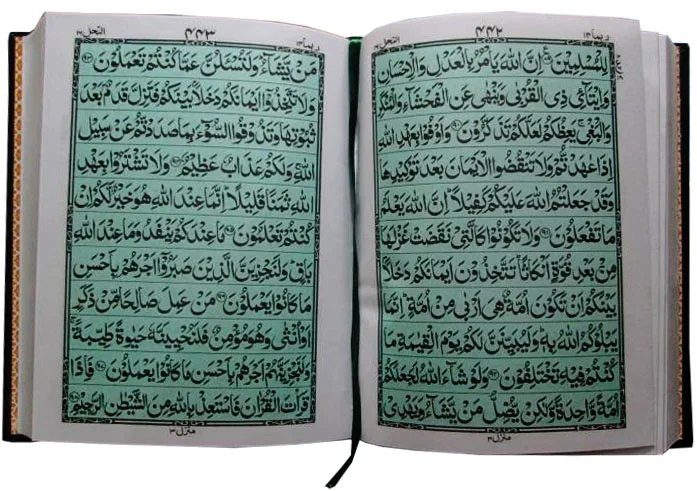 ربما ١٤ ٤٤٢ النحل ١٦
لِلْمُسْلِمِيْنَ ﴿٨٩﴾ اِنَّ اللّٰهَ يَاْمُرُ بِالْعَدْلِ وَالْاِحْسَانِ
وَاِيْتَآئِ ذِى الْقُرْبٰى وَيَنْهٰى عَنِ الْفَحْشَآءِ وَالْمُنْكَرِ
وَالْبَغْىِ ۚ يَعِظُكُمْ لَعَلَّكُمْ تَذَكَّرُوْنَ ﴿٩٠﴾ وَاَوْفُوْا بِعَهْدِ اللّٰهِ
اِذَا عٰهَدْتُّمْ وَلَا تَنْقُضُوا الْاَيْمَانَ بَعْدَ تَوْكِيْدِهَا
وَقَدْ جَعَلْتُمُ اللّٰهَ عَلَيْكُمْ كَفِيْلًا ؕ اِنَّ اللّٰهَ يَعْلَمُ
مَا تَفْعَلُوْنَ ﴿٩١﴾ وَلَا تَكُوْنُوْا كَالَّتِىْ نَقَضَتْ غَزْلَهَا
مِنْۢ بَعْدِ قُوَّةٍ اَنْكَاثًا ؕ تَتَّخِذُوْنَ اَيْمَانَكُمْ دَخَلًاۢ
بَيْنَكُمْ اَنْ تَكُوْنَ اُمَّةٌ هِىَ اَرْبٰى مِنْ اُمَّةٍ ؕ اِنَّمَا
يَبْلُوْكُمُ اللّٰهُ بِهٖ ؕ وَلَيُبَيِّنَنَّ لَكُمْ يَوْمَ الْقِيٰمَةِ مَا
كُنْتُمْ فِيْهِ تَخْتَلِفُوْنَ ﴿٩٢﴾ وَلَوْ شَآءَ اللّٰهُ لَجَعَلَكُمْ
اُمَّةً وَّاحِدَةً وَّلٰكِنْ يُّضِلُّ مَنْ يَّشَآءُ وَيَهْدِىْ
منزل ٣
ربما ١٤ ٤٤٣ النحل ١٦
مَنْ يَّشَآءُ ؕ وَلَتُسْئَلُنَّ عَمَّا كُنْتُمْ تَعْمَلُوْنَ ﴿٩٣﴾
وَلَا تَتَّخِذُوْۤا اَيْمَانَكُمْ دَخَلًاۢ بَيْنَكُمْ فَتَزِلَّ قَدَمٌۢ بَعْدَ
ثُبُوْتِهَا وَتَذُوْقُوا السُّوْٓءَ بِمَا صَدَدْتُّمْ عَنْ سَبِيْلِ
اللّٰهِ ۚ وَلَكُمْ عَذَابٌ عَظِيْمٌ ﴿٩٤﴾ وَلَا تَشْتَرُوْا بِعَهْدِ
اللّٰهِ ثَمَنًا قَلِيْلًا ؕ اِنَّمَا عِنْدَ اللّٰهِ هُوَ خَيْرٌ لَّكُمْ اِنْ
كُنْتُمْ تَعْلَمُوْنَ ﴿٩٥﴾ مَا عِنْدَكُمْ يَنْفَدُ وَمَا عِنْدَ اللّٰهِ
بَاقٍ ؕ وَلَنَجْزِيَنَّ الَّذِيْنَ صَبَرُوْۤا اَجْرَهُمْ بِاَحْسَنِ
مَا كَانُوْا يَعْمَلُوْنَ ﴿٩٦﴾ مَنْ عَمِلَ صَالِحًا مِّنْ ذَكَرٍ
اَوْ اُنْثٰى وَهُوَ مُؤْمِنٌ فَلَنُحْيِيَنَّهٗ حَيٰوةً طَيِّبَةً ۚ
وَلَنَجْزِيَنَّهُمْ اَجْرَهُمْ بِاَحْسَنِ مَا كَانُوْا يَعْمَلُوْنَ ﴿٩٧﴾ فَاِذَا
قَرَاْتَ الْقُرْاٰنَ فَاسْتَعِذْ بِاللّٰهِ مِنَ الشَّيْطٰنِ الرَّجِيْمِ ﴿٩٨﴾
منزل ٣